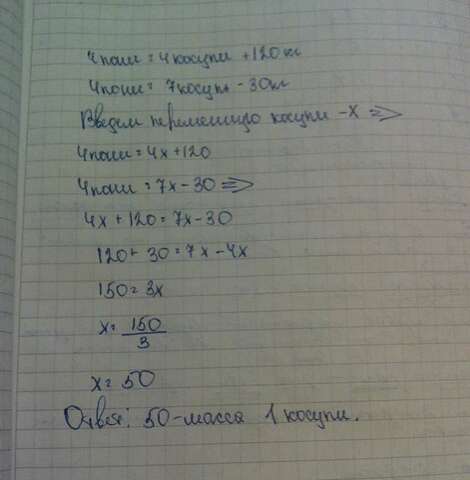 4 пони = 4 косули + 120 кг
4 пони = 7 косуль - 30 кг
Введем переменную косули - X =>
4 пони = 4x + 120
4 пони = 7x - 30 =>
4x + 120 = 7x - 30
120 + 30 = 7x - 4x
150 = 3x
x = 150/3
x = 50
Ответ: 50 - масса 1 косули.